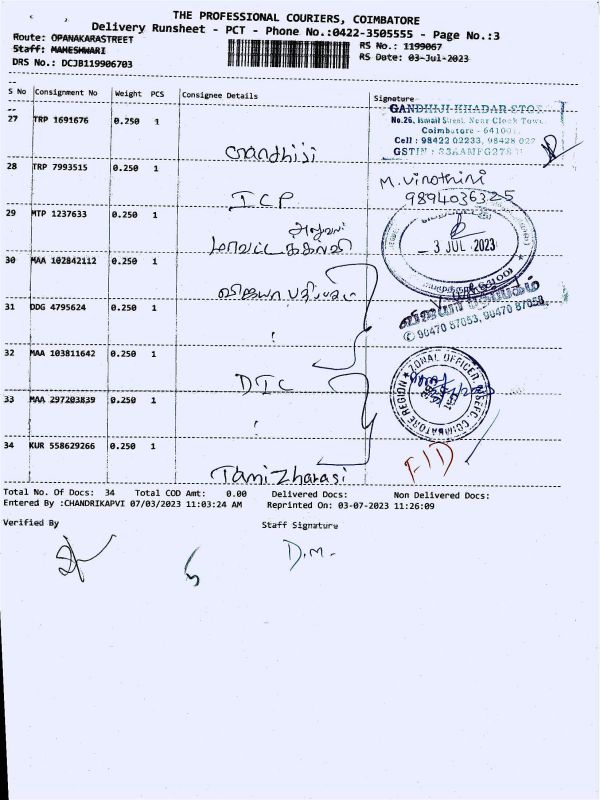 THE PROFESSIONAL COURIERS, COIMBATORE
Delivery Runsheet - PCT - Phone No.:0422-3505555 - Page No.:3
Route: OPANAKARASTREET
RS No.: 1199067
Staff: MAHESHWARI
RS Date: 03-Jul-2023
DRS No.: DCJB119906703
S No Consignment No Weight PCS Consignee Details Signature
27 TRP 1691676 0.250 1 Gandhiji
GANDHIJI KHADAR STO
No.26, Ismail Street, Near Clock Tow
Coimbatore - 64100
Cell : 98422 02233, 98428 027
GSTIN : 33AAMFG278
28 TRP 7993515 0.250 1 ICP
M. Vinothini
9894036325
29 MTP 1237633 0.250 1
3 JUL 2023
30 MAA 102842112 0.250 1
விஜயா பதிப்பகம்
90470 87053, 90470 87058
31 DDG 4795624 0.250 1 "
32 MAA 103811642 0.250 1 DIC
ZONAL OFFICER COIMBATORE REGION
33 MAA 297203839 0.250 1 "
34 KUR 558629266 0.250 1 Tamizharasi
Total No. Of Docs: 34 Total COD Amt: 0.00 Delivered Docs: Non Delivered Docs:
Entered By :CHANDRIKAPVI 07/03/2023 11:03:24 AM Reprinted On: 03-07-2023 11:26:09
Verified By Staff Signature
D.M.